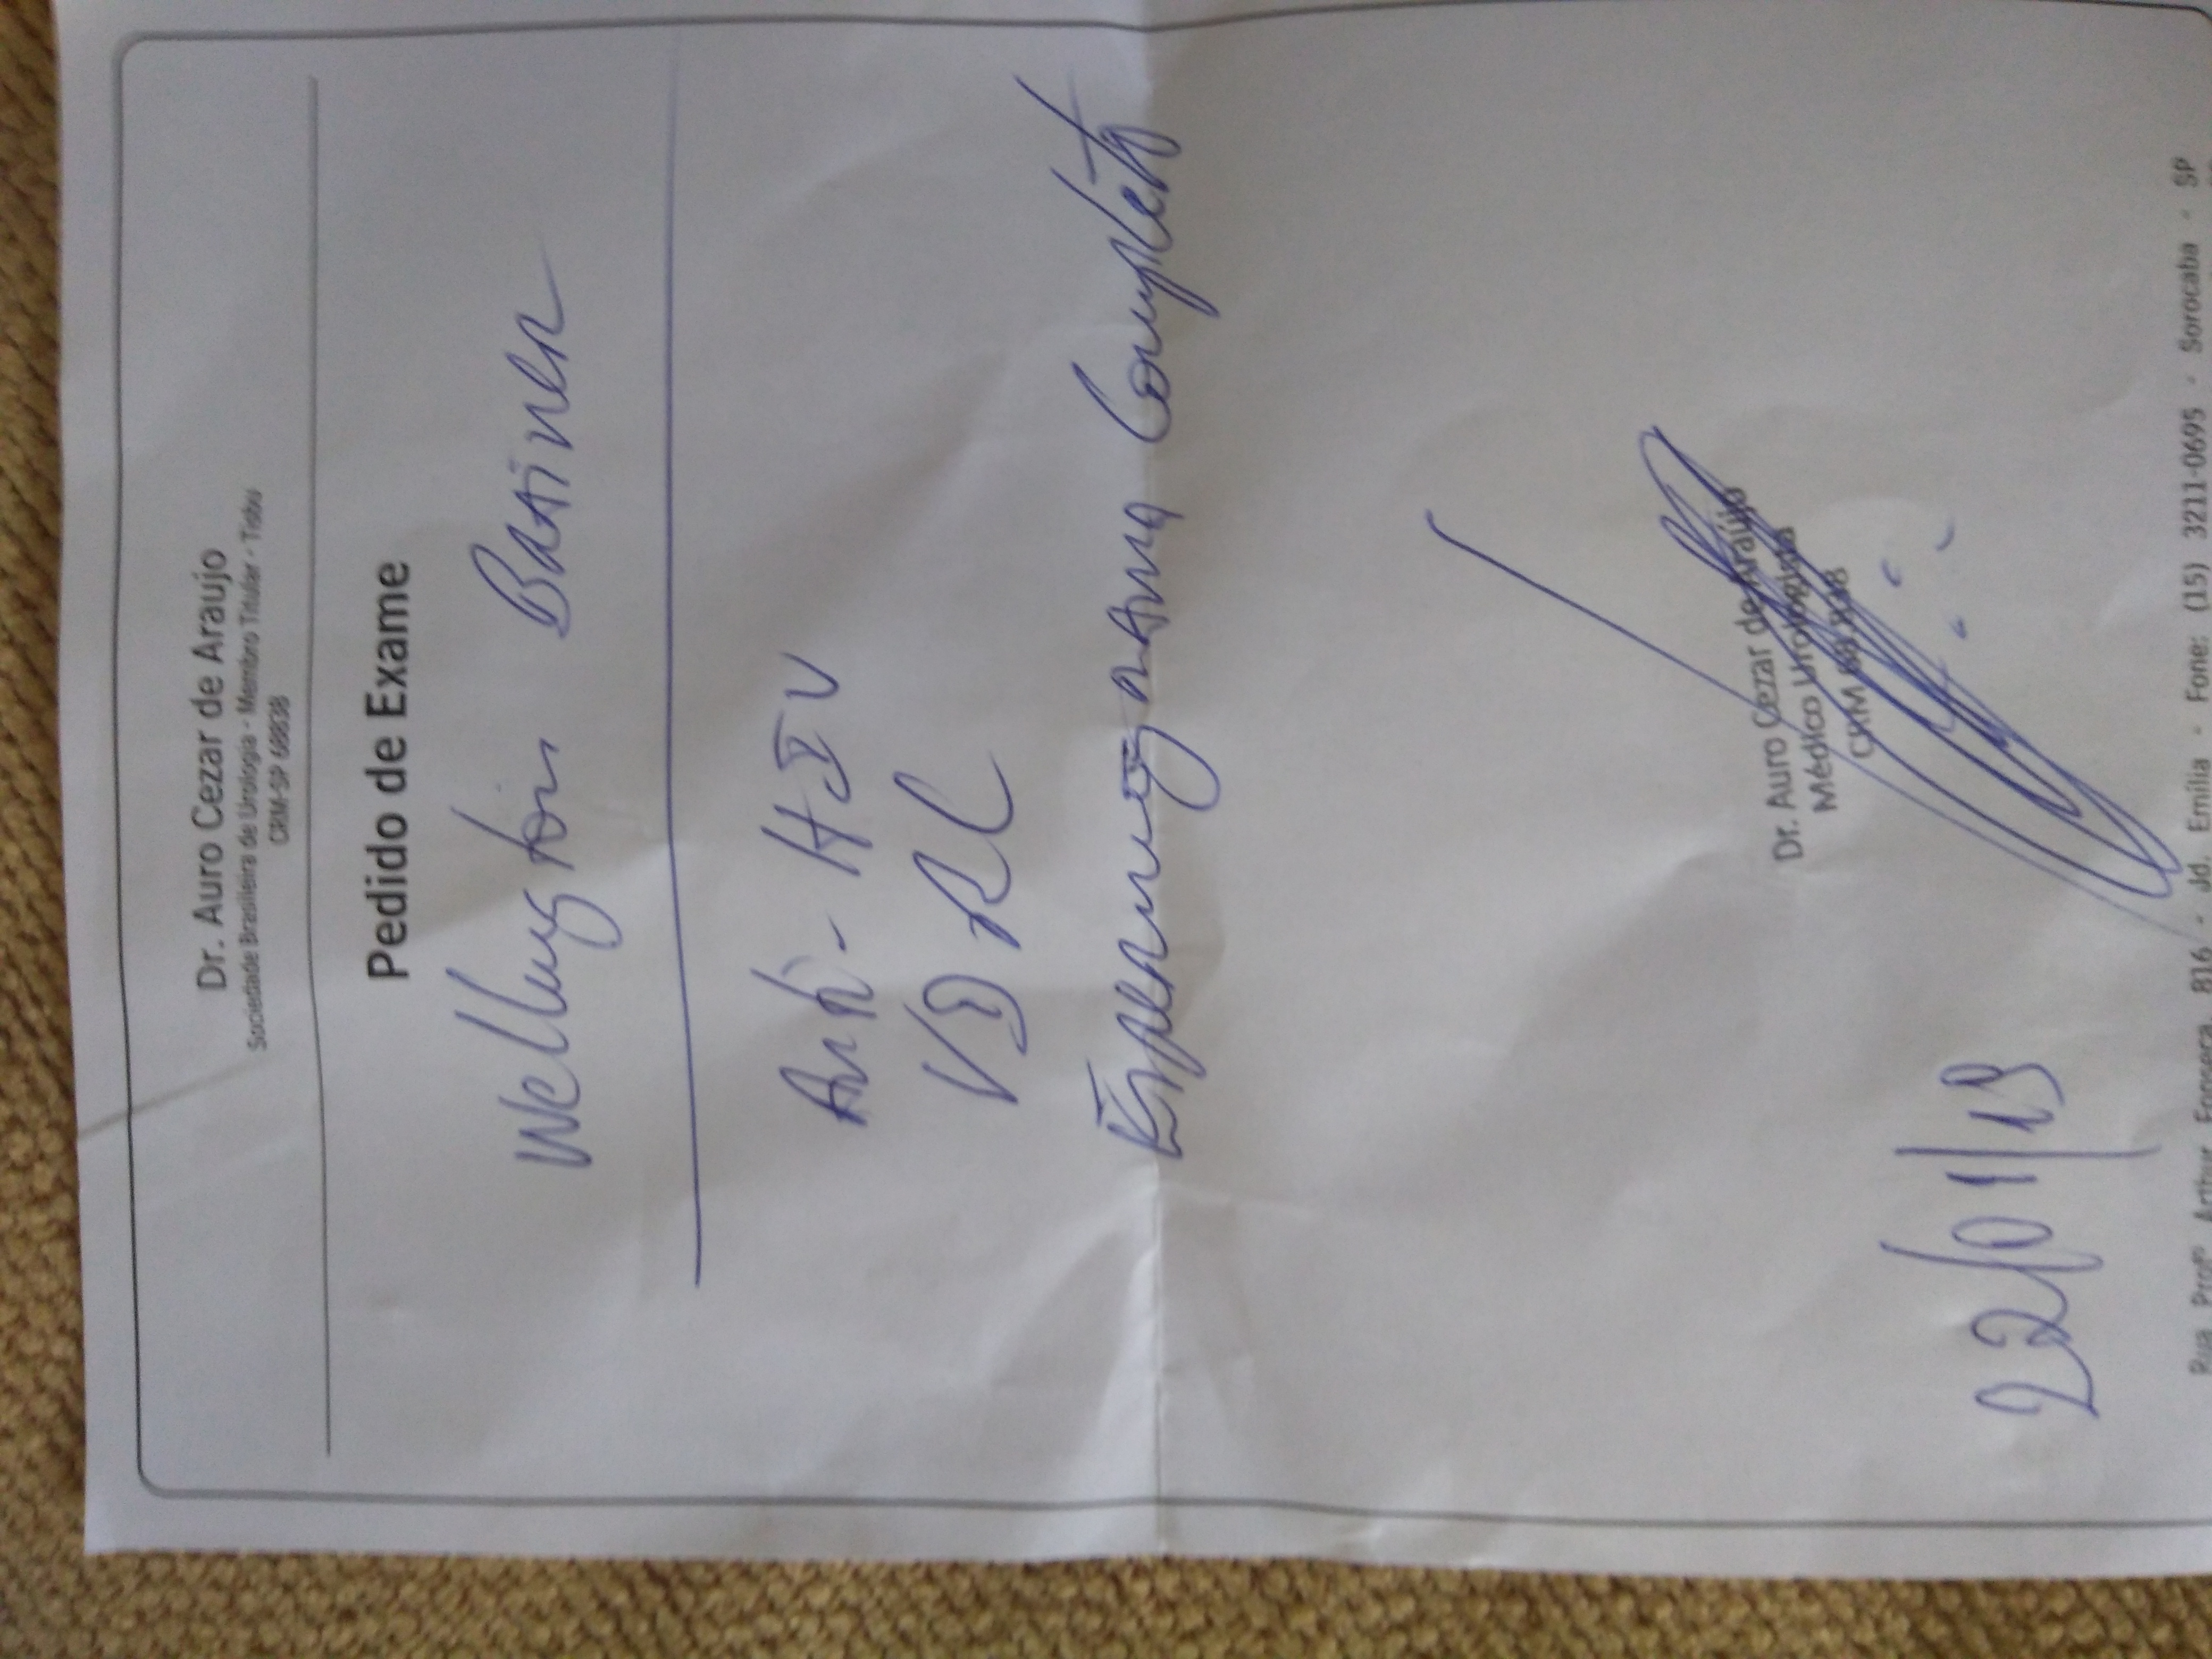 Dr. Auro Cezar de Araujo
Sociedade Brasileira de Urologia - Membro Titular - Tisbu
CRM-SP 68838
Pedido de Exame
Wellington Brainer
Anti-HIV
VDRL
Espermograma Completo
Dr. Auro Cezar de Araújo
Médico Urologista
CRM 68.838
22/01/19
Rua Profº Arthur Fonseca, 816 - Jd. Emília - Fone: (15) 3211-0695 - Sorocaba - SP